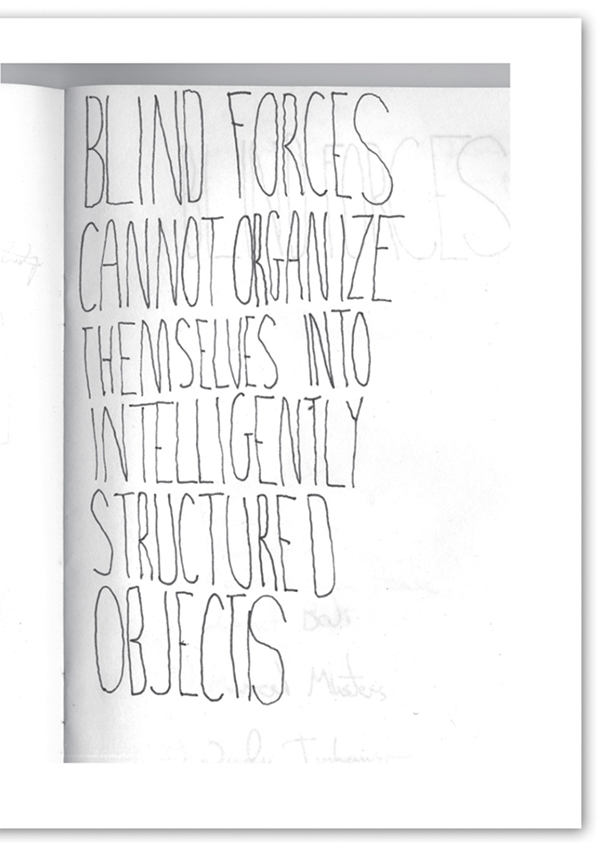 BLIND FORCES
CANNOT ORGANIZE
THEMSELVES INTO
INTELLIGENTLY
STRUCTURED
OBJECTS